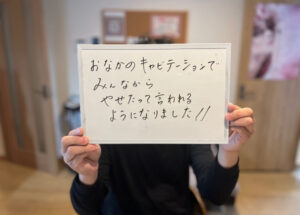 おなかのキャビテーションで
みんなから
やせたって言われる
ようになりました!!